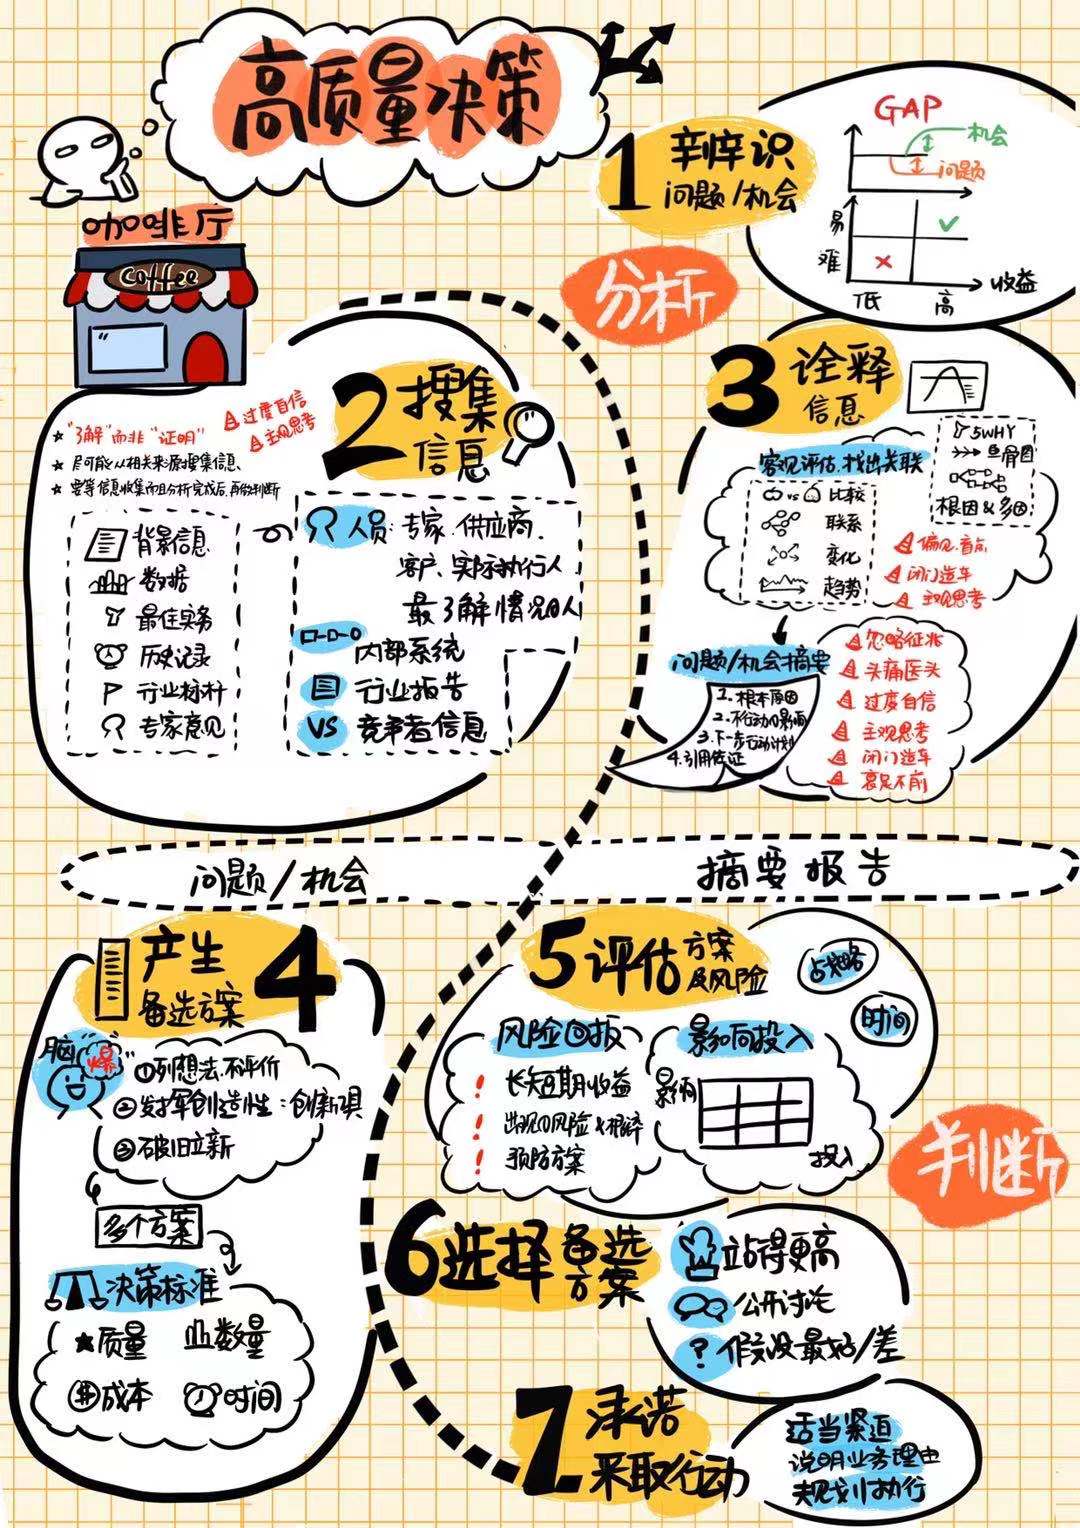 高质量决策
咖啡厅
coffee
1 辨识
问题/机会
GAP
机会
问题
易
难
低
高
收益
分析
2 搜集
信息
"了解"而非"证明"
过度自信
主观思考
尽可能从相关来源搜集信息
要等信息收集而且分析完成后,再做判断
背景信息
数据
最佳实务
历史记录
行业标杆
专家意见
人员:专家、供应商、
客户、实际执行人
最了解情况的人
内部系统
行业报告
VS 竞争者信息
3 诠释
信息
客观评估,找出关联
VS 比较
联系
变化
趋势
5WHY
鱼骨图
根因&多因
偏见、盲点
闭门造车
主观思考
问题/机会摘要
1. 根本原因
2. 不行动的影响
3. 下一步行动计划
4. 引用佐证
忽略征兆
头痛医头
过度自信
主观思考
闭门造车
裹足不前
问题/机会
摘要报告
4 产生
备选方案
脑"爆"
①列想法、不评价
②发挥创造性:创新
③破旧立新
多个方案
决策标准
质量
数量
成本
时间
5 评估方案
及风险
占战略
时间
风险回报
长短期收益
出现的风险&
预防方案
影响投入
影响
投入
判断
6 选择备选
方案
站得更高
公开讨论
? 假设最好/差
7 承诺
采取行动
适当紧迫
说明业务理由
规划执行